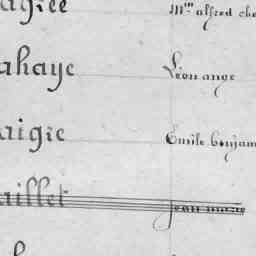 agrée Mme alfred che
ahaye Léon ange
aigie Emile benjam
aillet jean marie